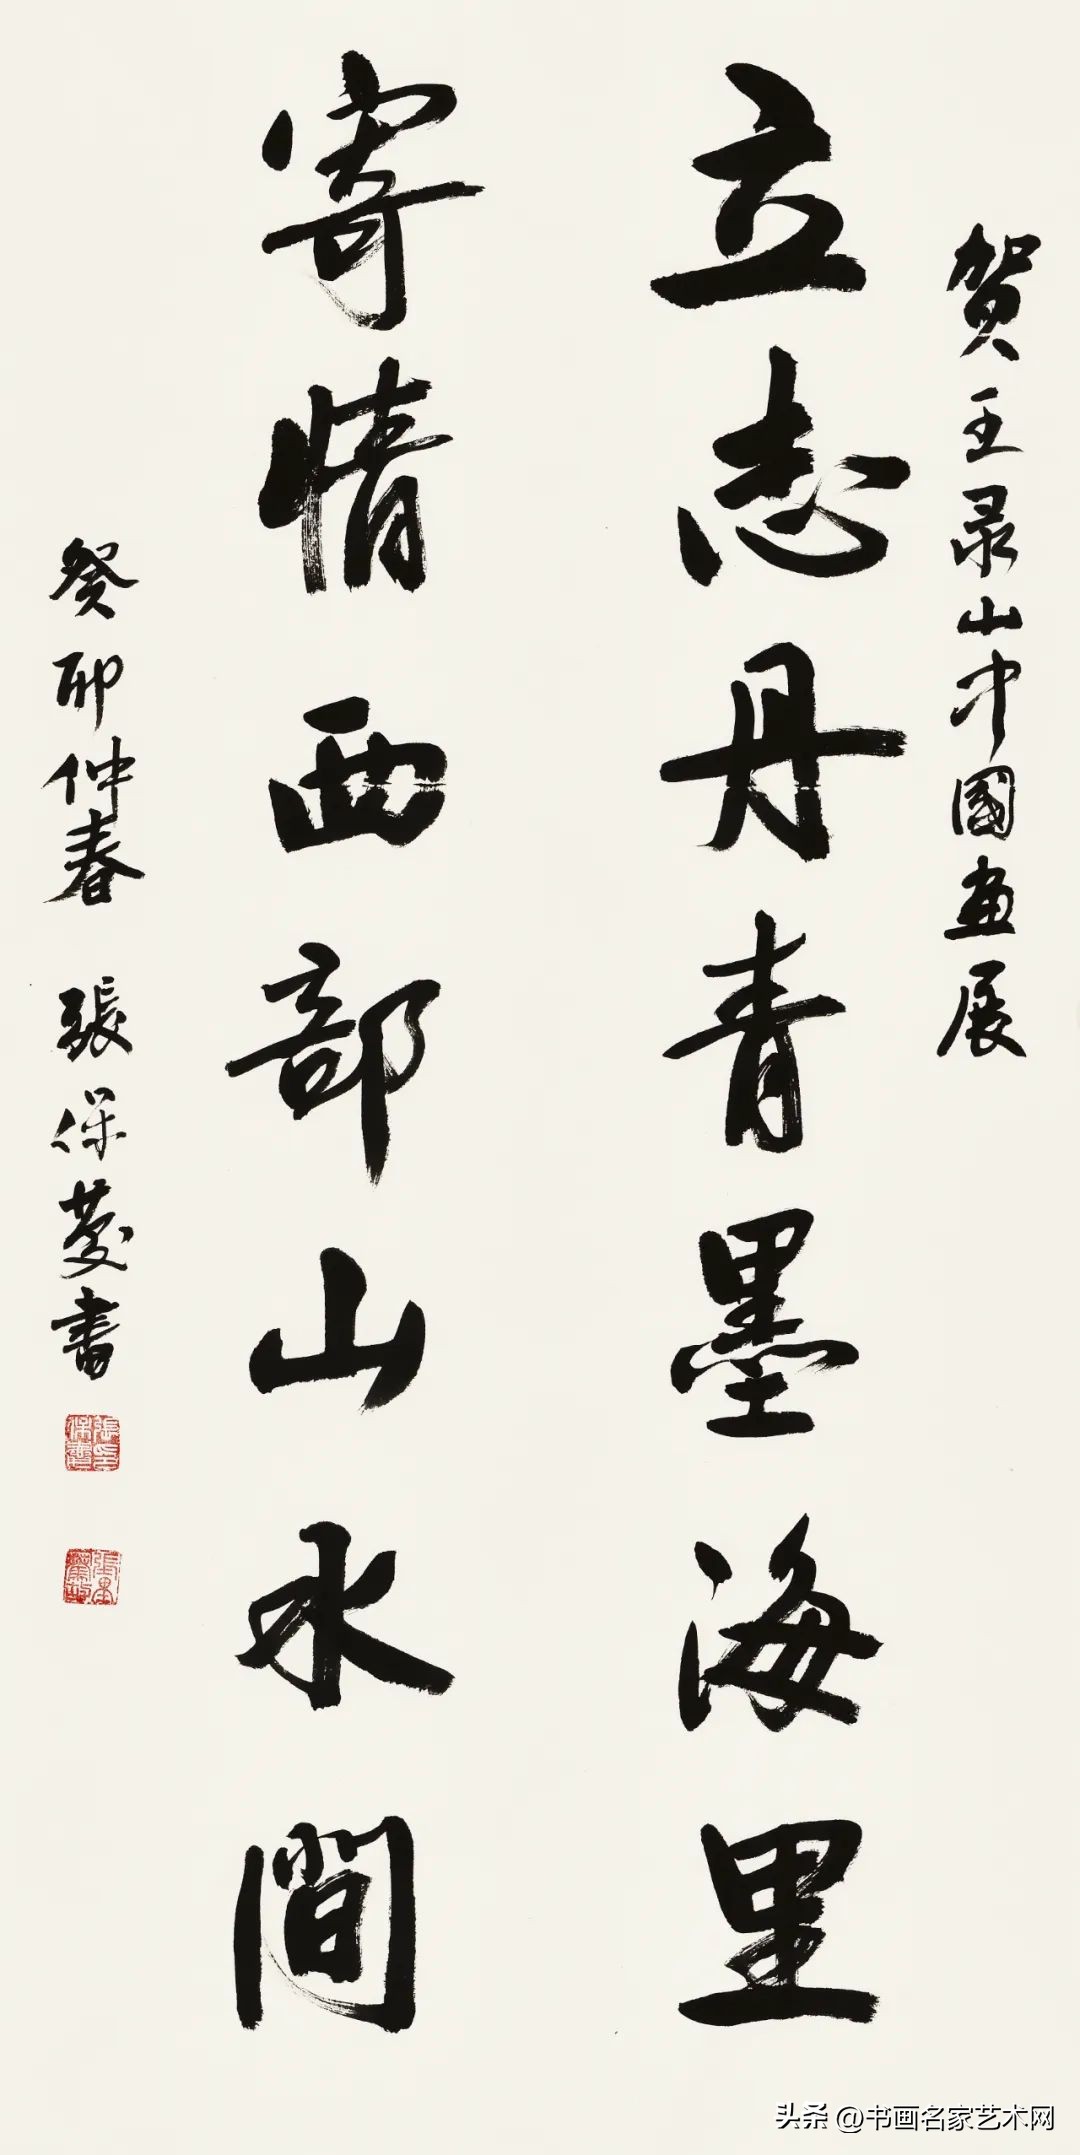 贺王录山中國画展
立志丹青墨海里
寄情西部山水間
癸卯仲春 張保慶書
头条 @书画名家艺术网